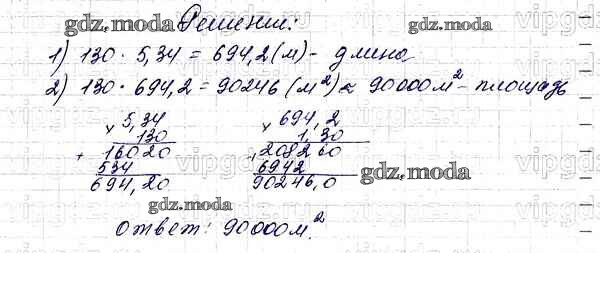 Решение:
1) 130 · 5,34 = 694,2 (м) - длина
2) 130 · 694,2 = 90246 (м²) ≈ 90000 м² - площадь
× 5,34
130
+ 16020
534
694,20
× 694,2
1,30
+ 208260
6942
90246,0
Ответ: 90000 м².
gdz.moda
gdz.moda
gdz.moda
gdz.moda